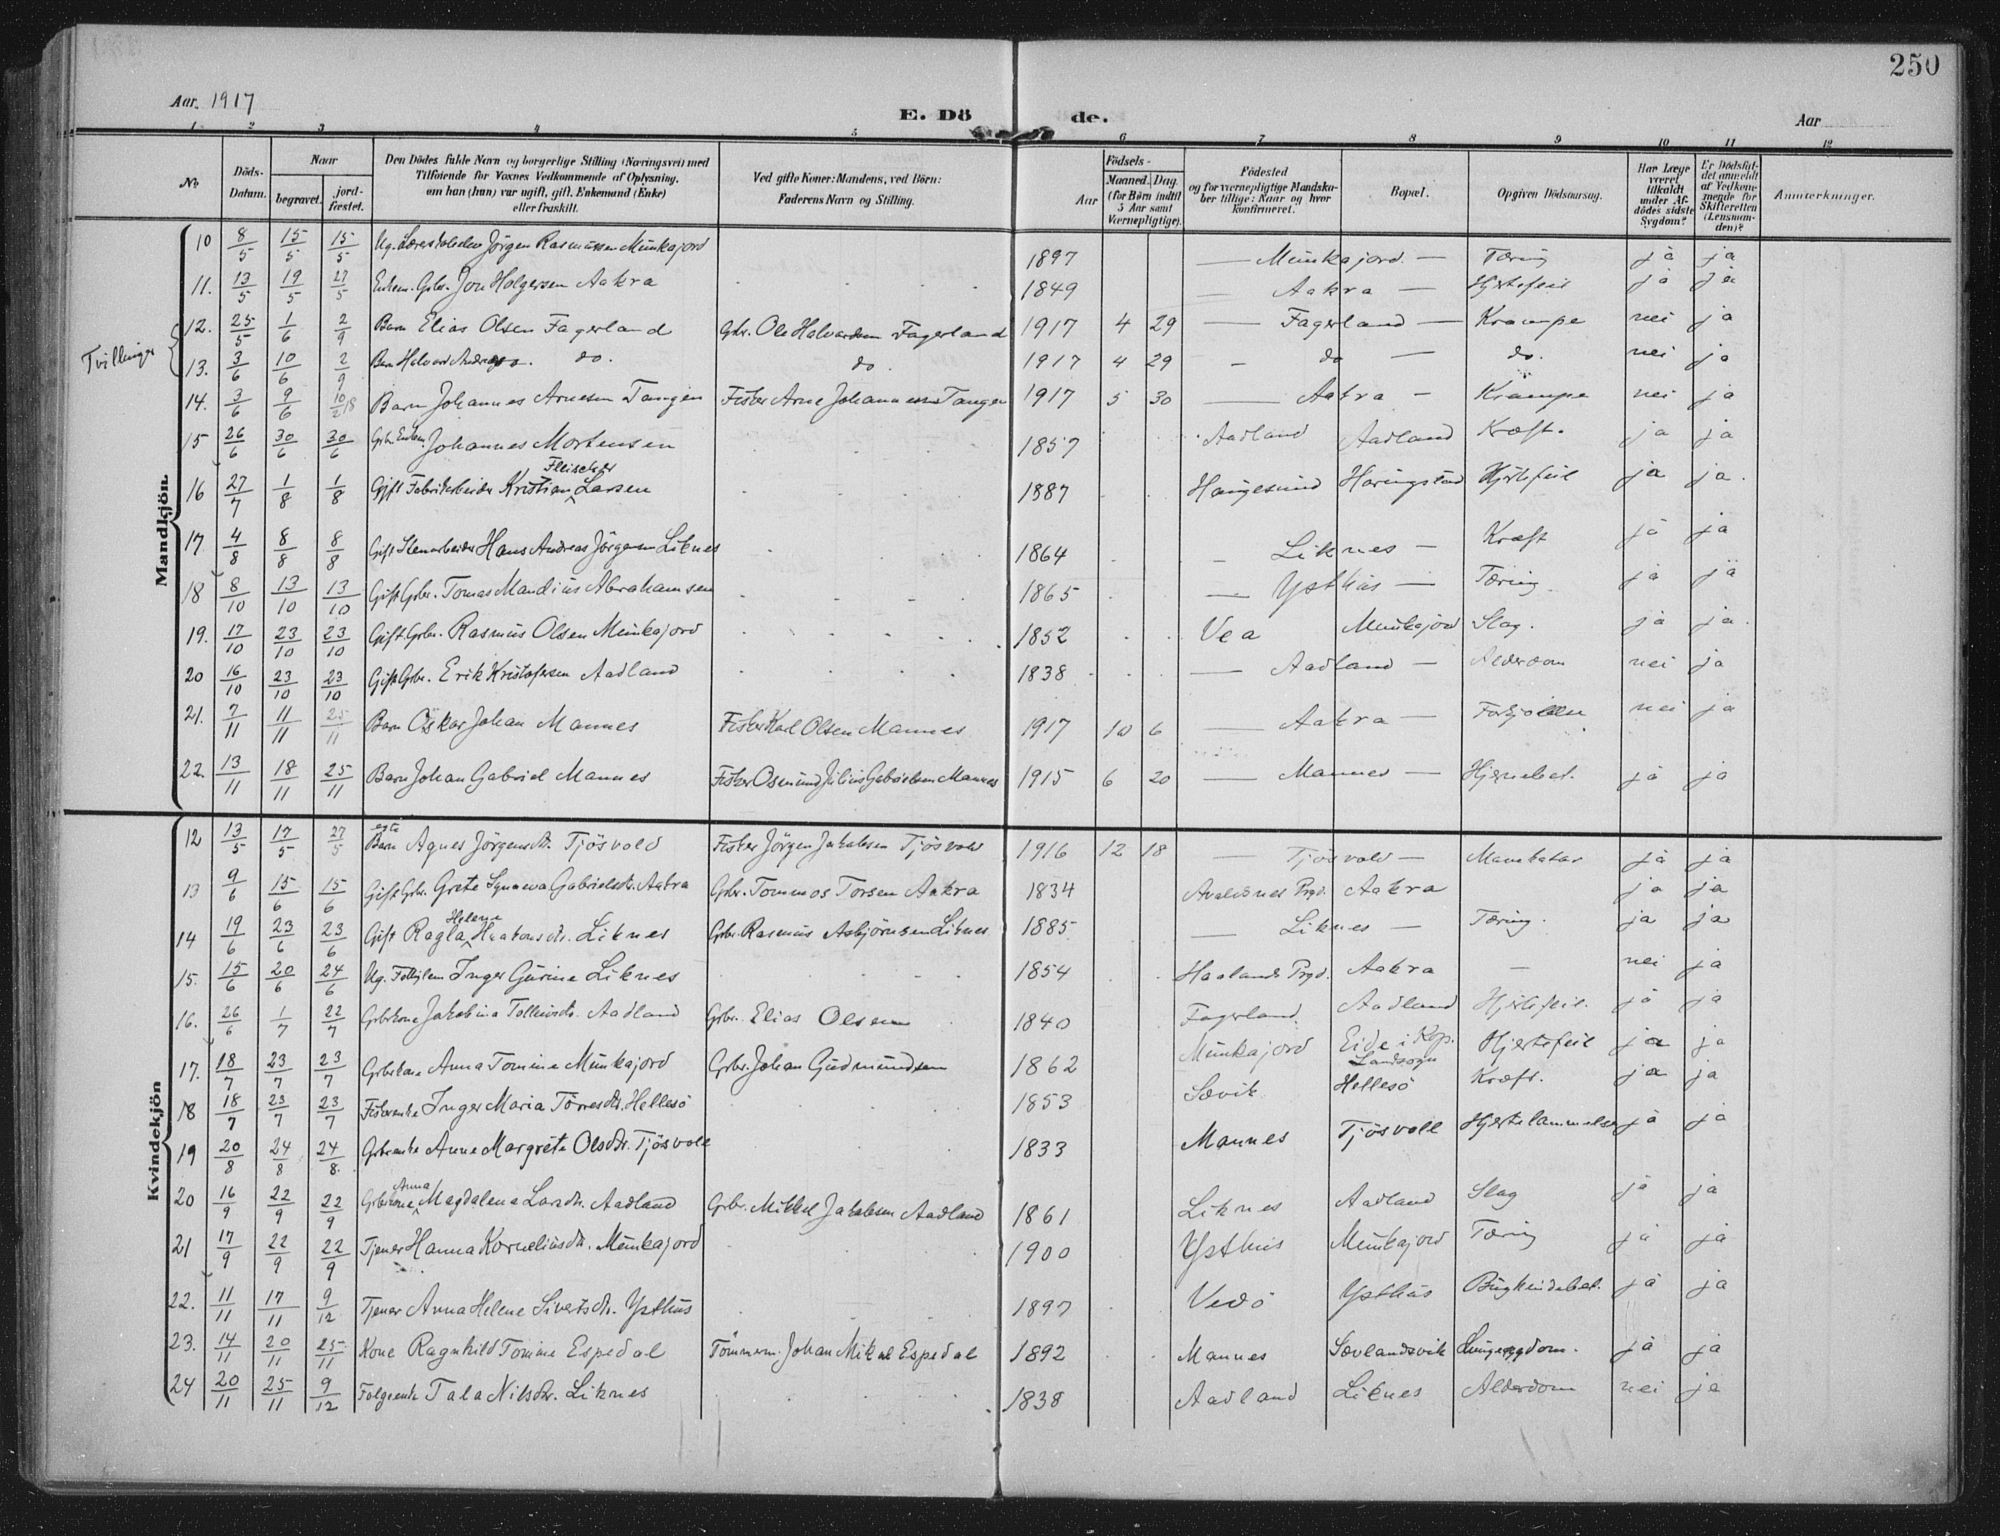 250
Aar. 1917
E. Dö de.
Aar
1 2 3 4 5 6 7 8 9 10 11 12
No. Döds-Datum. Naar begravet. jord-fæstet. Den Dödes fulde Navn og borgerlige Stilling (Næringsvei) med Tilföiende for Voxnes Vedkommende af Oplysning, om han (hun) var ugift, gift, Enkemand (Enke) eller fraskilt. Ved gifte Koner: Mandens, ved Börn: Faderens Navn og Stilling. Aar Födsels- Maaned. Dag. (for Børn indtil 5 Aar samt Værnepligtige). Födested og for værnepligtige Mandskaber tillige: Naar og hvor konfirmeret. Bopæl. Opgiven Dödsaarsag. Har Læge været tilkaldt under Afdödes sidste Sygdom? Er Dödsfaldet anmeldt af Vedkommende for Skifteretten (Lensmanden)? Anmærkninger.
Mandkjön.
10 8/5 15/5 15/5 Ug. Jörgen Rasmussen Munkajord 1897 — Munkajord — Tæring ja ja
11. 13/5 19/5 27/5 Enkem. Gbr. Jon Holgersen Aakra 1849 — Aakra — Hjertefeil ja ja
Tvillinger
12. 25/5 1/6 2/9 Barn Elias Olsen Fagerland Gbr. Ole Halvardsen Fagerland 1917 4 29 — Fagerland — Krampe nei ja
13. 3/6 10/6 2/9 Barn Halvard Andreas do. do. 1917 4 29 - do — do. nei ja
14. 3/6 9/6 10/2 18 Barn Johannes Arnesen Tangen Fisker Arne Johannesen Tangen 1917 5 30 — Aakra - Krampe nei ja
15 26/6 30/6 30/6 Gbr. Enkem. Johannes Mortensen 1857 Aadland Aadland Kræft. ja ja
16 27/7 1/8 1/8 Gift Fabrikarbeider Kristian Fleischer Larsen 1887 Haugesund Haringstad Hjertefeil ja ja.
17 4/8 8/8 8/8 Gift Stenarbeider Hans Andreas Jörgensen Liknes 1864 - Liknes — Kræft ja ja
18 8/10 13/10 13/10 Gift Gbr. Tomas Mandius Abrahamsen 1865 — Ysthus — Tæring. ja ja
19. 17/10 23/10 23/10 Gift. Gbr. Rasmus Olsen Munkajord 1852 Vea Munkajord Slag. ja ja.
20 16/10 23/10 23/10 Gift Gbr. Erik Kristofersen Aadland 1838 — Aadland — Alderdom nei ja
21. 7/11 11/11 25/11 Barn Oskar Johan Mannes Fisker Karl Olsen Mannes 1917 10 6 — Aakra — nei ja
22. 13/11 18/11 25/11 Barn Johan Gabriel Mannes Fisker Osmund Julius Gabrielsen Mannes 1915 6 20 — Mannes — Hjernebet. ja ja
Kvindekjön
12 13/5 17/5 27/5 egte Barn Agnes Jörgensdtr. Tjösvold Fisker Jörgen Jakobsen Tjösvold 1916 12 18 — Tjösvold — Mavekatar ja ja
13 9/6 15/6 15/6 Gift Gbr. Grete Synneva Gabrielsdtr. Aakra Gbr. Tommos Torsen Aakra 1834 Avaldsnes Prgd. Aakra ja ja
14 19/6 23/6 23/6 Gift Ragla Helene Haakonsdtr. Liknes Gbr. Rasmus Asbjörnsen Liknes 1885 — Liknes — Tæring. ja ja
15. 15/6 20/6 24/6 Ug. Inger Gurine Liknes 1854 Haalands Prgd. Aakra — nei ja
16. 26/6 1/7 22/7 Gbrkone Jakobina Tolleivsdtr. Aadland Gbr. Elias Olsen 1840 Fagerland Aadland Hjertefeil. ja ja
17. 18/7 23/7 23/7 Gbrkone Anna Tomine Munkajord Gbr. Johan Gudmundsen 1862 Munkajord Eide i Kop. Landsogn Hjertefeil ja ja
18 18/7 23/7 23/7 Fiskerenke Inger Maria Tönnesdtr. Hellesö 1853 Sævik Hellesö Kræft. ja ja
19 20/8 24/8 24/8. Gbrenke Anne Margrete Olsdtr. Tjösvoll 1833 Mannes Tjösvoll Hjertelammelse ja ja
20 16/9 22/9 22/9 Gbrkone Anna Magdalena Larsdtr. Aadland Gbr. Mikkel Jakobsen Aadland 1861 Liknes Aadland Slag ja ja
21 17/9 22/9 22/9 Tjener Hanna Korneliusdtr. Munkajord 1900 Ysthus Munkajord Tæring ja ja
22. 11/11 17/11 9/12 Tjener Anna Helene Sivertsdtr. Ysthus 1897 Vedö Ysthus Bughindebet. ja ja
23. 14/11 20/11 25/11 Kone Ragnhild Tomine Espedal Tömmerm. Johan Mikal Espedal 1892 Mannes Sævlandsvik Lungesygdom. ja ja
24 20/11 25/11 9/12 Folgeenke Tala Nilsdtr. Liknes 1838 Aadland Liknes Alderdom nei ja